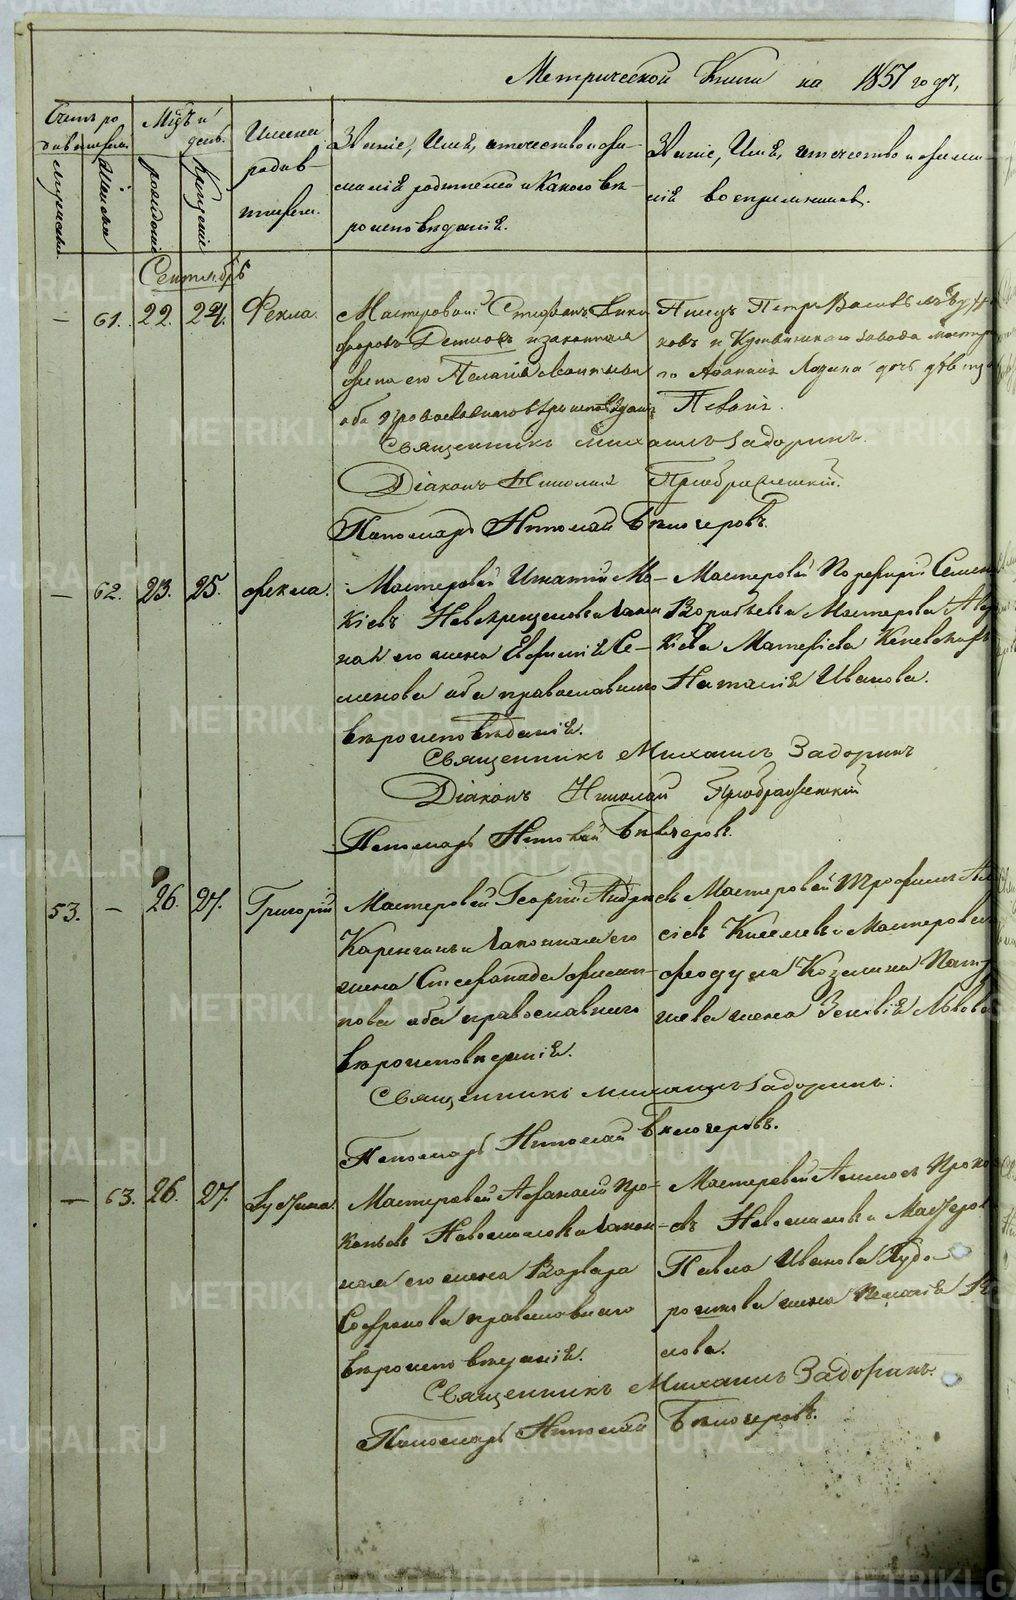 Метрической Книги на 1857 годъ,
Счетъ ро
дившихся
мужеска
женска
Мѣсц и
день.
рожденіе
крещеніе
Имена
родив-
шихся.
Званіе, Имя, отчество и фа-
милія родителей и какого вѣ-
роисповѣданія.
Званіе, Имя, отчество и фами-
лія воспріемниковъ.
Сентябрь
— 61. 22. 24. Фекла.
Мастеровой Стефанъ Ники
форовъ и законная
жена его Пелагія
оба православнаго вѣроисповѣданія
Писецъ Петръ Васильевъ
ковъ и Кушвинскаго завода мастеро
го дочь дѣвица
Священникъ Михаилъ Задоринъ.
Діаконъ Николай Преображенскій.
Пономарь Николай Бѣлозеровъ.
— 62. 23. 25. Фекла.
Мастеровой Игнатій Мо-
кіевъ Новокрещеновъ и закон
ная его жена Евфимія Се-
менова оба православнаго
вѣроисповѣданія.
Мастеровой Порфирій Семен
Воробьевъ и Мастерова
Наталія Иванова.
Священникъ Михаилъ Задоринъ
Діаконъ Николай Преображенскій
Пономарь Николай Бѣлозеровъ.
53. — 26. 27. Григорій
Мастеровой Георгій Андреевъ
и законная его
жена Стефанида Филип-
пова оба православнаго
вѣроисповѣданія.
Мастеровой Трофимъ
сіевъ Киселевъ и Мастеровой
Феодула Козьмина
шева жена Зеновія Львова
Священникъ Михаилъ Задоринъ.
Пономарь Николай Бѣлозеровъ.
— 63. 26. 27. Іустина.
Мастеровой Афанасій Про-
копьевъ Новосиловъ и закон-
ная его жена Варвара
Софронова православнаго
вѣроисповѣданія.
Мастеровой Прокоп
евъ Новосиловъ и Мастеров
Павла Иванова
жена Пелагія
лова.
Священникъ Михаилъ Задоринъ.
Пономарь Николай Бѣлозеровъ.
METRIKI.GASO-URAL.RU